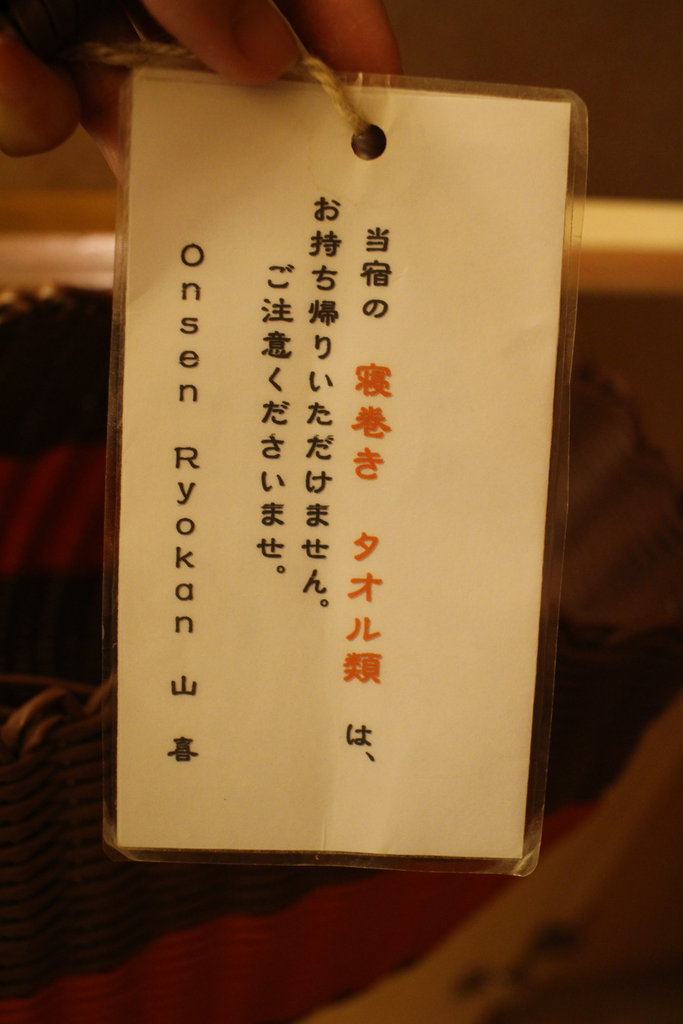 当宿の 寝巻き タオル類 は、
お持ち帰りいただけません。
ご注意くださいませ。
Onsen Ryokan 山喜